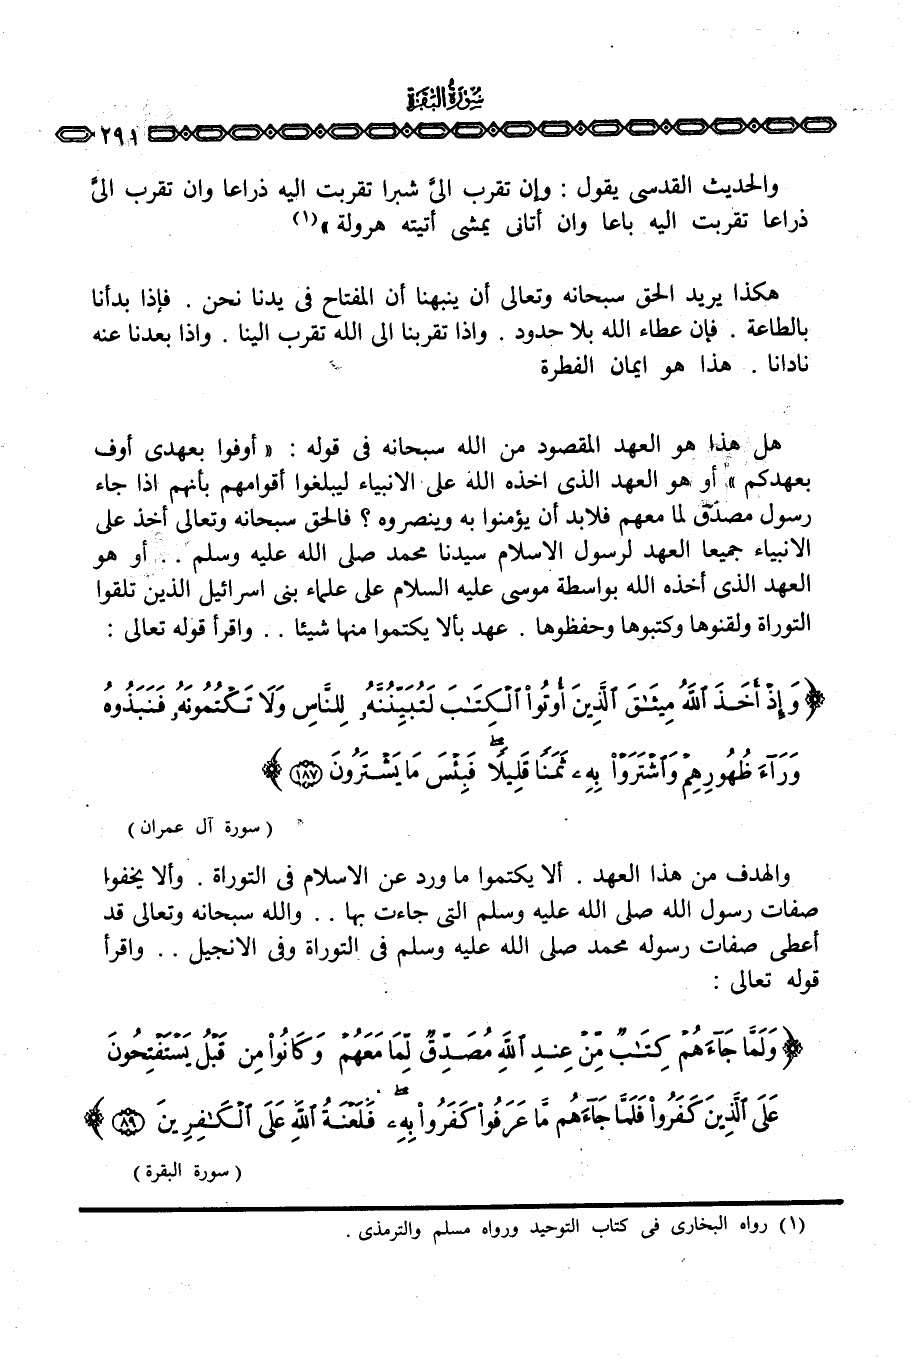 سورة البقرة
٢٩١
والحديث القدسى يقول : وإن تقرب الىَّ شبرا تقربت اليه ذراعا وان تقرب الىَّ
ذراعا تقربت اليه باعا وان أتانى يمشى أتيته هرولة » (١)
هكذا يريد الحق سبحانه وتعالى أن ينبهنا أن المفتاح فى يدنا نحن . فإذا بدأنا
بالطاعة . فإن عطاء الله بلا حدود . واذا تقربنا الى الله تقرب الينا . واذا بعدنا عنه
نادانا . هذا هو ايمان الفطرة
هل هذا هو العهد المقصود من الله سبحانه فى قوله : « أوفوا بعهدى أوف
بعهدكم » أو هو العهد الذى اخذه الله على الانبياء ليبلغوا أقوامهم بأنهم اذا جاء
رسول مصدّق لما معهم فلابد أن يؤمنوا به وينصروه ؟ فالحق سبحانه وتعالى أخذ على
الانبياء جميعا العهد لرسول الاسلام سيدنا محمد صلى الله عليه وسلم . . أو هو
العهد الذى أخذه الله بواسطة موسى عليه السلام على علماء بنى اسرائيل الذين تلقوا
التوراة ولقنوها وكتبوها وحفظوها . عهد بألا يكتموا منها شيئا . . واقرأ قوله تعالى :
﴿ وَإِذْ أَخَذَ ٱللَّهُ مِيثَٰقَ ٱلَّذِينَ أُوتُوا۟ ٱلْكِتَٰبَ لَتُبَيِّنُنَّهُۥ لِلنَّاسِ وَلَا تَكْتُمُونَهُۥ فَنَبَذُوهُ
وَرَآءَ ظُهُورِهِمْ وَٱشْتَرَوْا۟ بِهِۦ ثَمَنًا قَلِيلًا ۖ فَبِئْسَ مَا يَشْتَرُونَ ١٨٧ ﴾
( سورة آل عمران )
والهدف من هذا العهد . ألا يكتموا ما ورد عن الاسلام فى التوراة . وألا يخفوا
صفات رسول الله صلى الله عليه وسلم التى جاءت بها . . والله سبحانه وتعالى قد
أعطى صفات رسوله محمد صلى الله عليه وسلم فى التوراة وفى الانجيل . . واقرأ
قوله تعالى :
﴿ وَلَمَّا جَآءَهُمْ كِتَٰبٌ مِّنْ عِندِ ٱللَّهِ مُصَدِّقٌ لِّمَا مَعَهُمْ وَكَانُوا۟ مِن قَبْلُ يَسْتَفْتِحُونَ
عَلَى ٱلَّذِينَ كَفَرُوا۟ فَلَمَّا جَآءَهُم مَّا عَرَفُوا۟ كَفَرُوا۟ بِهِۦ ۚ فَلَعْنَةُ ٱللَّهِ عَلَى ٱلْكَٰفِرِينَ ٨٩ ﴾
( سورة البقرة )
(١) رواه البخارى فى كتاب التوحيد ورواه مسلم والترمذى .